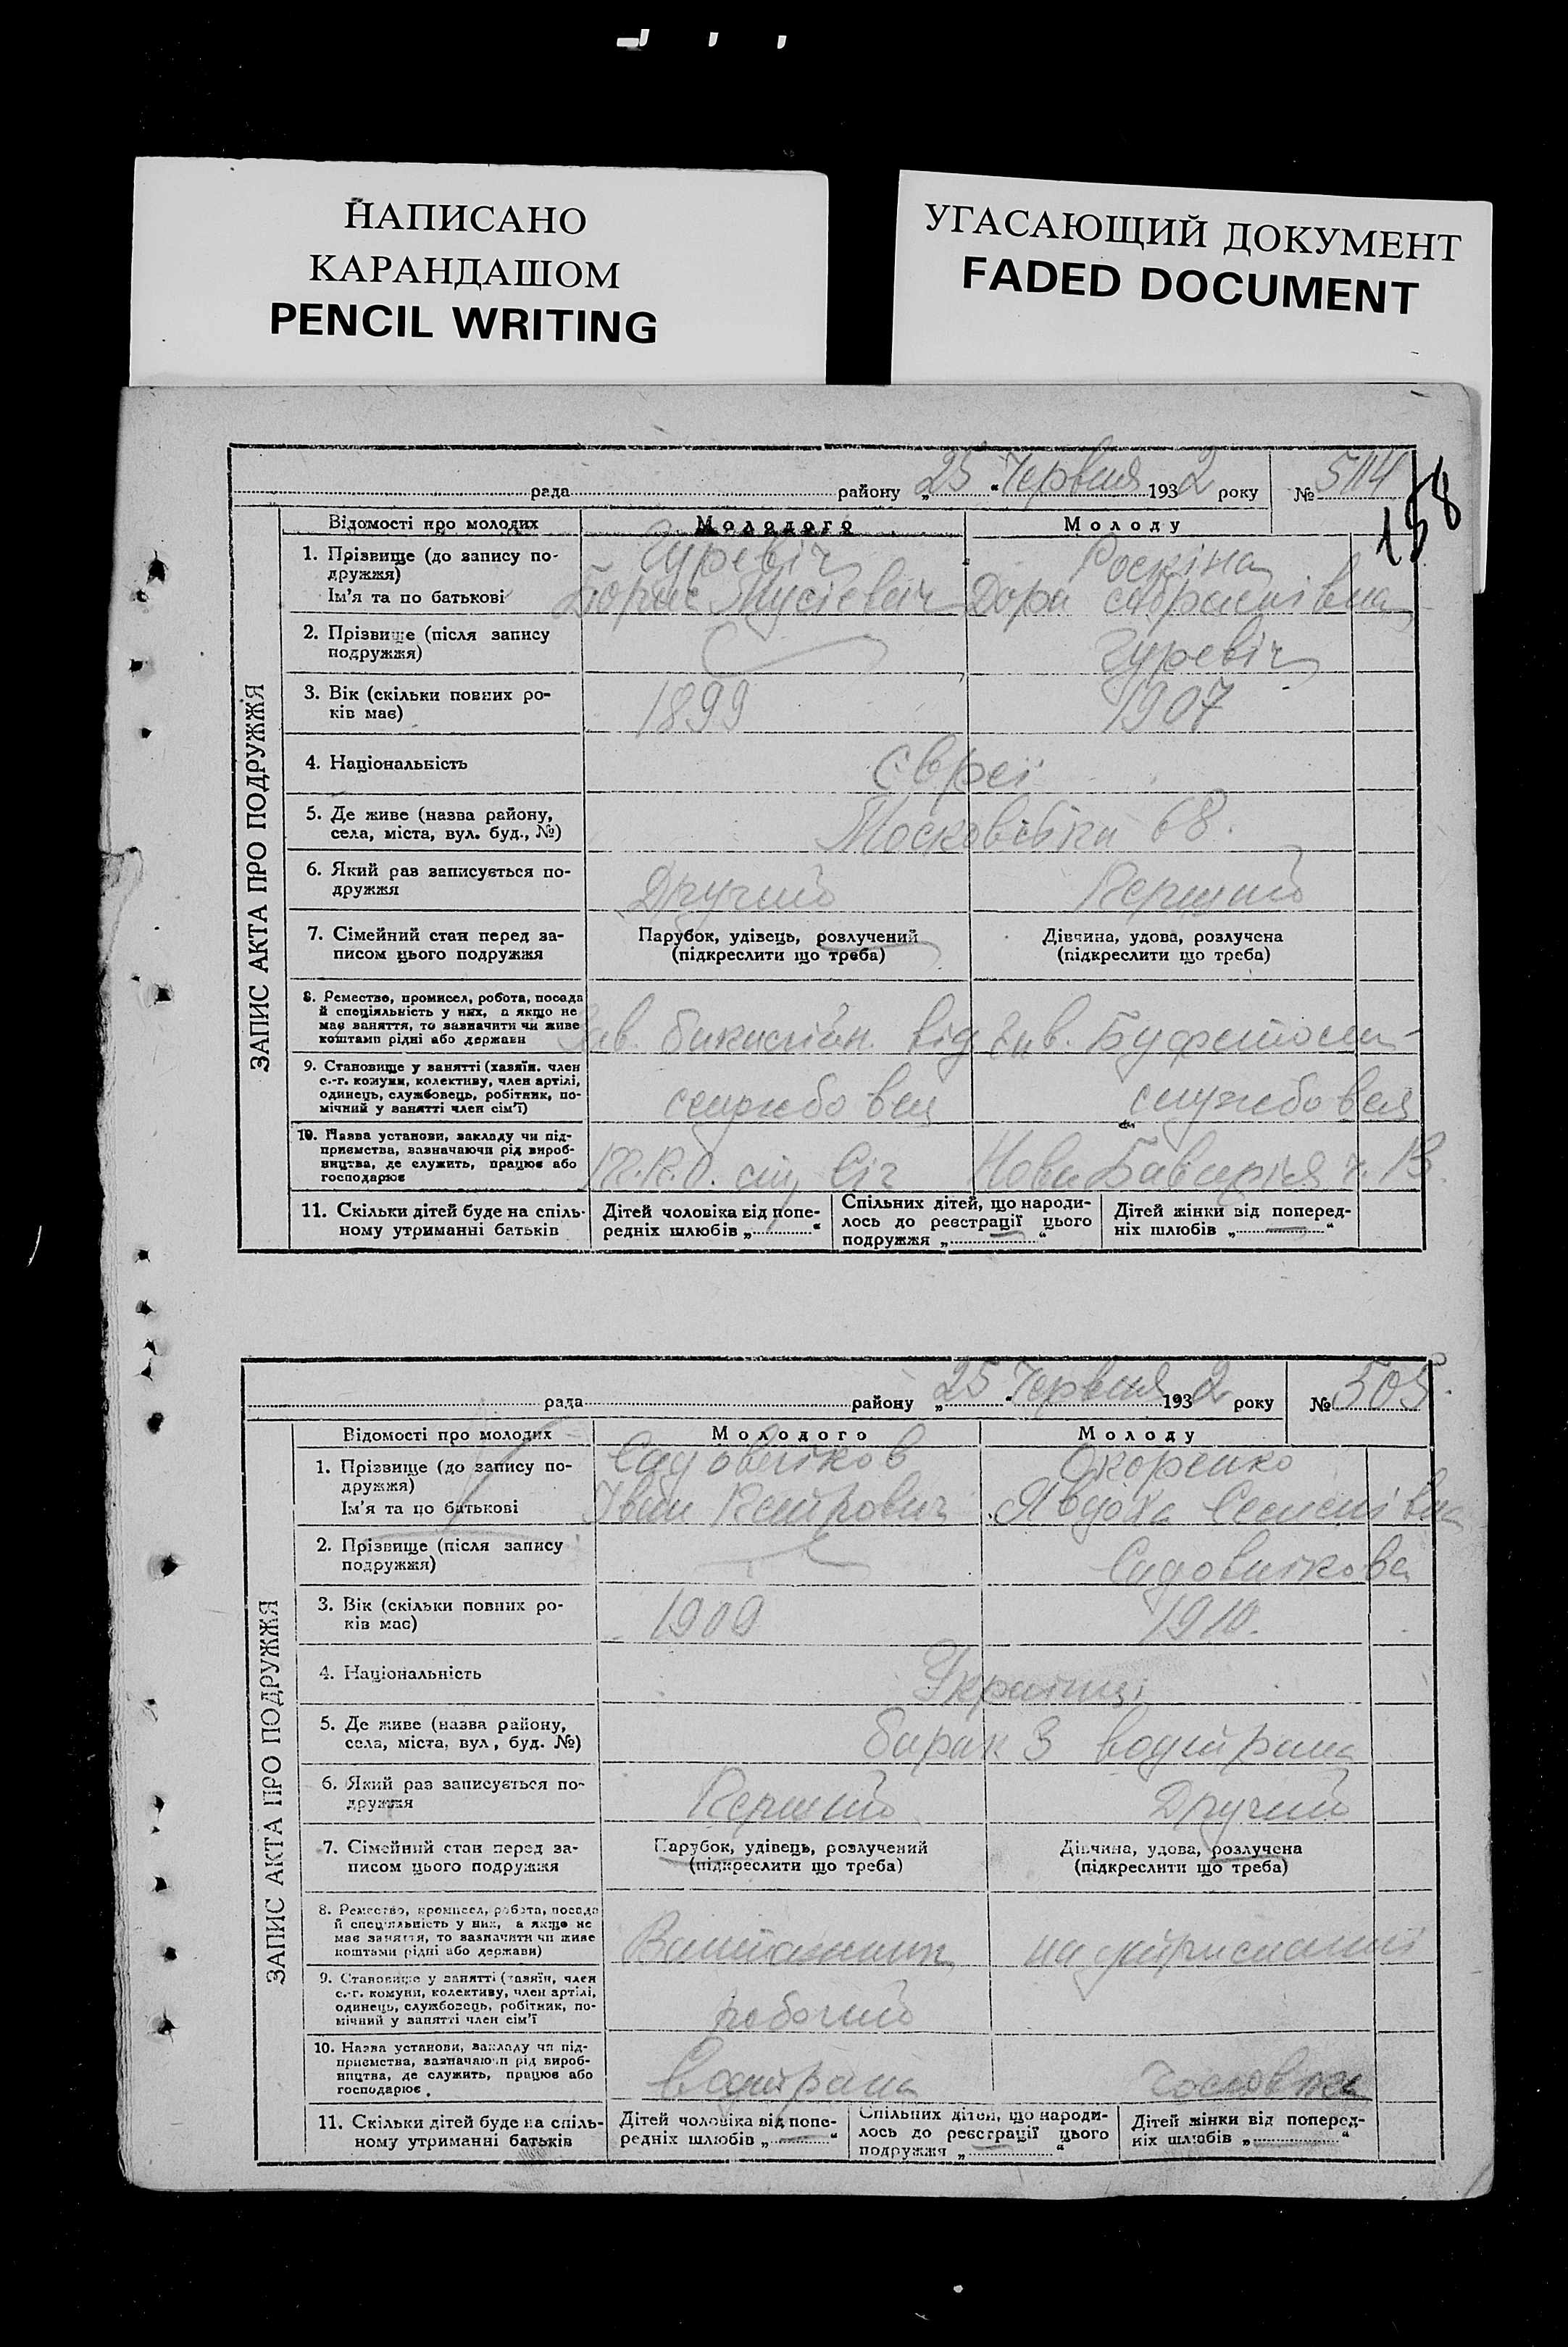 НАПИСАНО
КАРАНДАШОМ
PENCIL WRITING
УГАСАЮЩИЙ ДОКУМЕНТ
FADED DOCUMENT
158
рада району „25 “ Червня 1932 року №
ЗАПИС АКТА ПРО ПОДРУЖЖЯ
Відомості про молодих Молодого Молоду
1. Прізвище (до запису по-
дружжя)
Гуревіч Роскіна
Ім'я та по батькові Борис Мусієвич Дора Абрамівна
2. Прізвище (після запису
подружжя)
Гуревіч
3. Вік (скільки повних ро-
ків має)
1899 1907
4. Національність Євреї
5. Де живе (назва району,
села, міста, вул. буд., №)
Московська 68.
6. Який раз записується по-
дружжя
Другий Перший
7. Сімейний стан перед за-
писом цього подружжя
Парубок, удівець, розлучений
(підкреслити що треба)
Дівчина, удова, розлучена
(підкреслити що треба)
8. Ремество, промисел, робота, посада
й спеціяльність у них, а якщо не
має заняття, то зазначити чи живе
коштами рідні або держави
Зав. від Зав. Буфетом
9. Становище у занятті (хазяїн, член
с.-г. комуни, колективу, член артілі,
одинець, службовець, робітник, по-
мічний у занятті член сім'ї)
службовець службовець
10. Назва установи, закладу чи під-
приємства, зазначаючи рід вироб-
ництва, де служить, працює або
господарює
Нова Баварія
11. Скільки дітей буде на спіль-
ному утриманні батьків
Дітей чоловіка від попе-
редніх шлюбів „ “
Спільних дітей, що народи-
лось до реєстрації цього
подружжя „ “
Дітей жінки від поперед-
ніх шлюбів „ — “
рада району „25 “ Червня 1932 року № 505.
ЗАПИС АКТА ПРО ПОДРУЖЖЯ
Відомості про молодих Молодого Молоду
1. Прізвище (до запису по-
дружжя)
Садовніков Окоренко
Ім'я та по батькові Іван Петрович Явдоха Семенівна
2. Прізвище (після запису
подружжя)
Садовнікова
3. Вік (скільки повних ро-
ків має)
1909 1910.
4. Національність Українці
5. Де живе (назва району,
села, міста, вул, буд. №)
барак 3
6. Який раз записується по-
дружжя
Перший Другий
7. Сімейний стан перед за-
писом цього подружжя
Парубок, удівець, розлучений
(підкреслити що треба)
Дівчина, удова, розлучена
(підкреслити що треба)
8. Ремество, промисел, робота, посада
й спеціяльність у них, а якщо не
має заняття, то зазначити чи живе
коштами рідні або держави)
на утриманні
9. Становище у занятті (хазяїн, член
с.-г. комуни, колективу, член артілі,
одинець, службовець, робітник, по-
мічний у занятті член сім'ї
робочий
10. Назва установи, закладу чи під-
приємства, зазначаючи рід вироб-
ництва, де служить, працює або
господарює.
11. Скільки дітей буде на спіль-
ному утриманні батьків
Дітей чоловіка від попе-
редніх шлюбів „ — “
Спільних дітей, що народи-
лось до реєстрації цього
подружжя „ — “
Дітей жінки від поперед-
ніх шлюбів „ — “